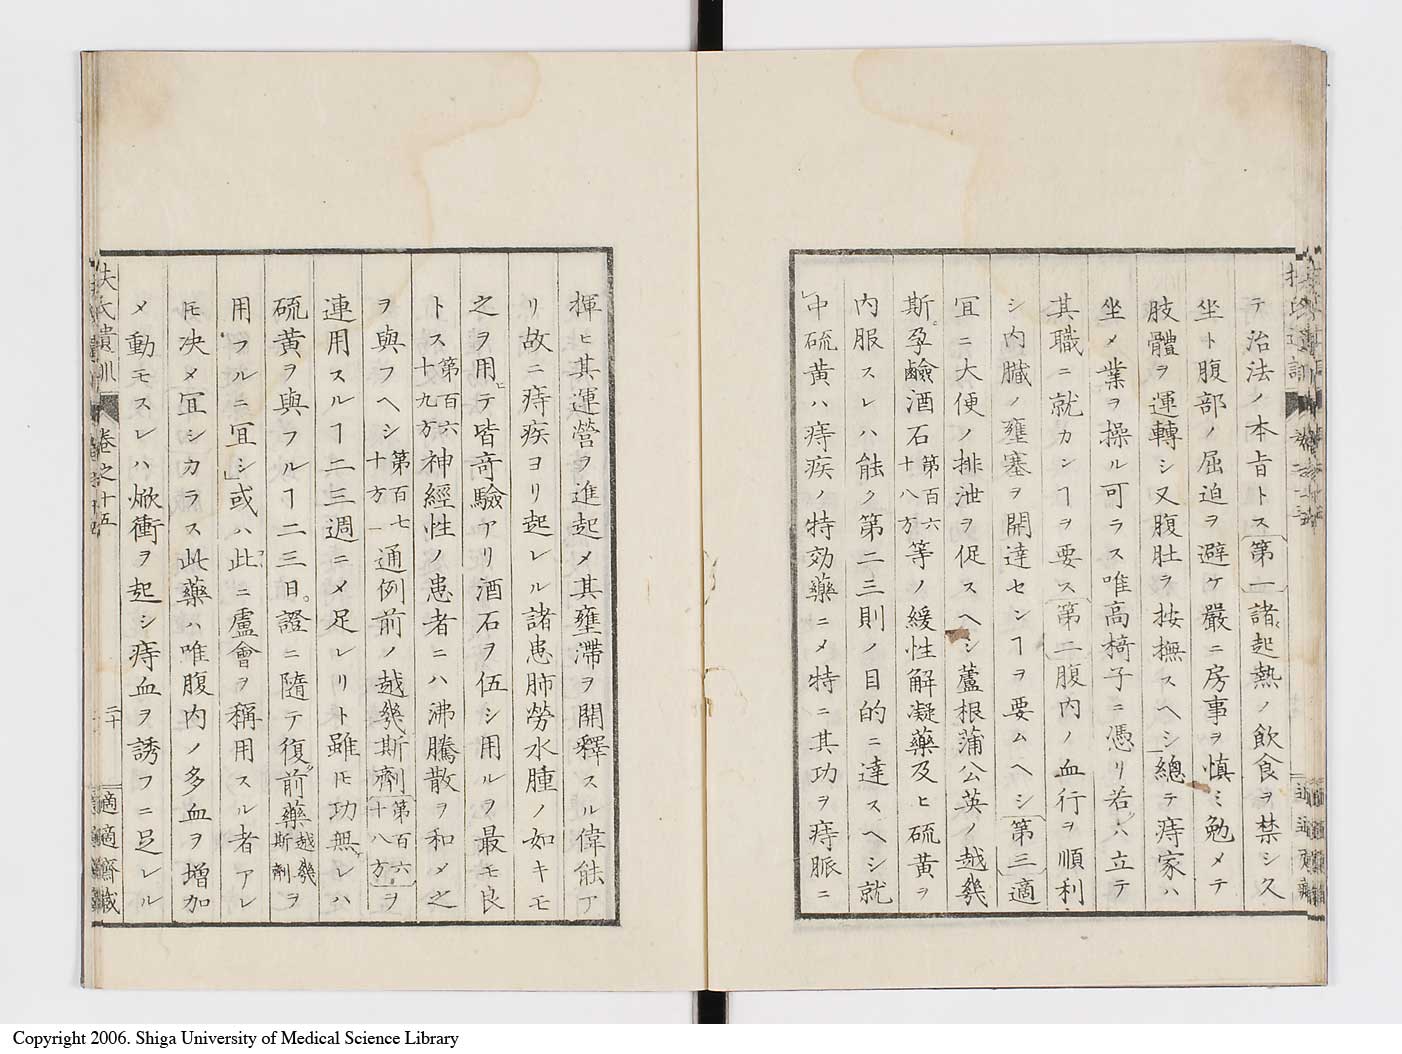 テ治法ノ本旨トス第一諸起熱ノ飲食ヲ禁シ久
坐ト腹部ノ屈迫ヲ避ケ嚴ニ房事ヲ慎ミ勉メテ
肢體ヲ運轉シ又腹肚ヲ按撫スヘシ總テ痔家ハ
坐メ業ヲ操ル可ラス唯高椅子ニ憑リ若ハ立テ
其職ニ就カンヿヲ要ス第二腹内ノ血行ヲ順利
シ内臓ノ壅塞ヲ開達センヿヲ要ムヘシ第三適
冝ニ大便ノ排泄ヲ促スヘシ蘆根蒲公英ノ越幾
斯孕鹸酒石第百六十八方等ノ緩性解凝藥及ヒ硫黄ヲ
内服スレハ能ク第二三則ノ目的ニ達スヘシ就
中硫黄ハ痔疾ノ特効藥ニメ特ニ其功ヲ痔脈ニ
揮ヒ其運營ヲ進起メ其壅滯ヲ開釋スル偉能ア
リ故ニ痔疾ヨリ起レル諸患肺勞水腫ノ如キモ
之ヲ用ヒテ皆竒驗アリ酒石ヲ伍シ用ルヲ最モ良
トス第百六十九方神經性ノ患者ニハ沸騰散ヲ和メ之
ヲ與フヘシ第百七十一方通例前ノ越幾斯劑第百六十八方ヲ
連用スルヿ二三週ニメ足レリト雖モ功無レハ
硫黄ヲ與フルヿ二三日證ニ隨テ復前藥越幾斯劑ヲ
用フルニ冝シ或ハ此ニ盧會ヲ稱用スル者アレ
𪜈决メ冝シカラス此藥ハ唯腹内ノ多血ヲ増加
メ動モスレハ焮衝ヲ起シ痔血ヲ誘フニ足レル
扶氏遺訓
卷之十五
二十
適適齋藏
Copyright 2006. Shiga University of Medical Science Library